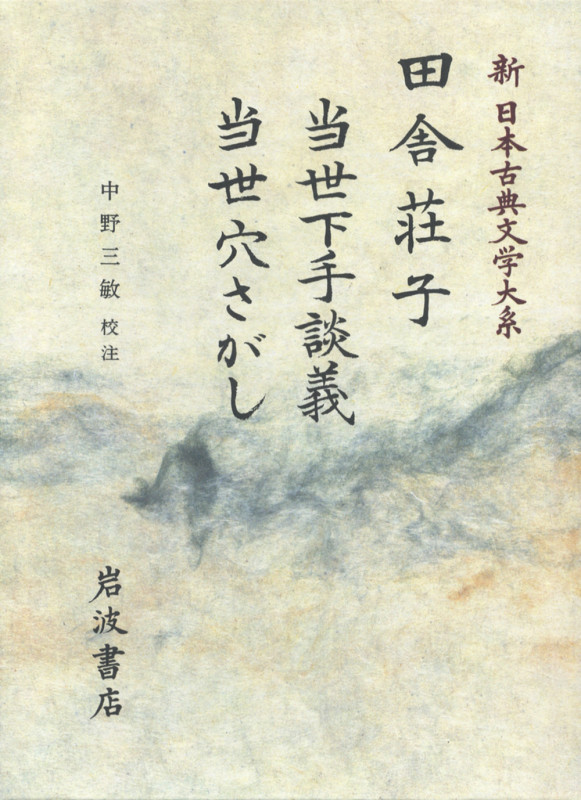 新 日本古典文学大系
田舎荘子
当世下手談義
当世穴さがし
中野三敏 校注
岩波書店